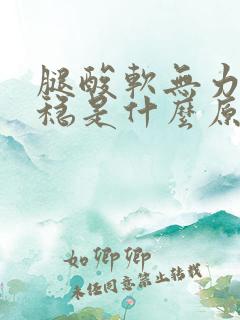 腿酸軟無力
穩是什麼原
如卿卿
未任同意禁止轉載